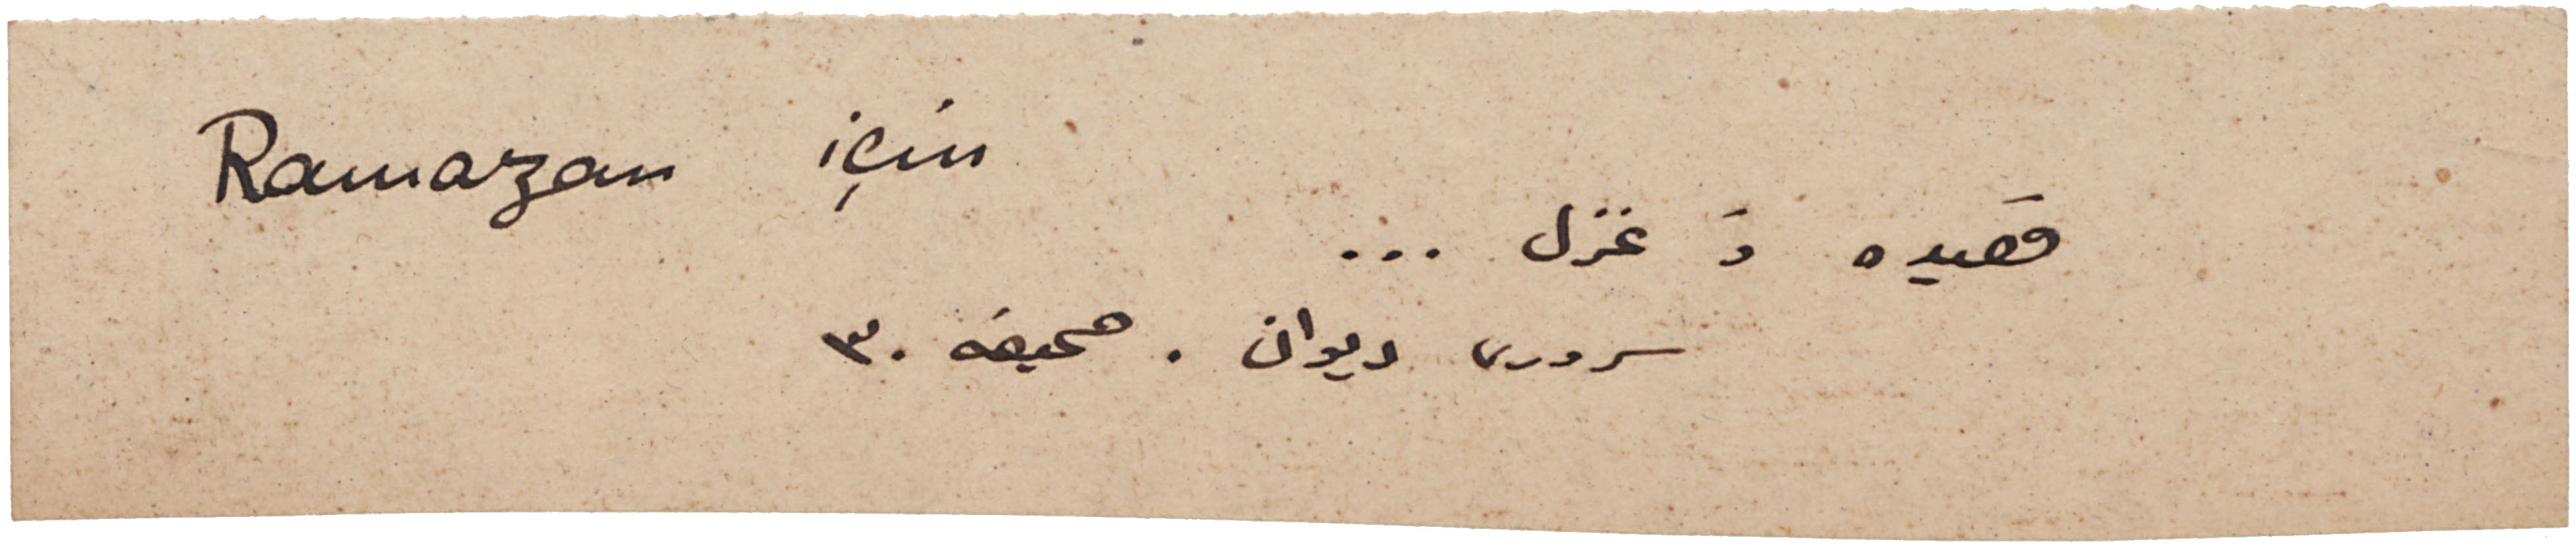 Ramazan için
قصیده و غزل ...
سروری دیوان . صحیفه ٣٠